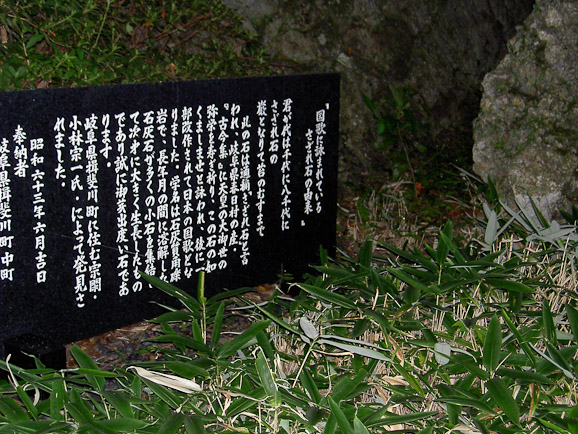 『国歌に詠まれている
さざれ石の由来』
君が代は千代に八千代に
さざれ石の
巌となりて苔のむすまで
此の石は通称さざれ石と言
われ、岐阜県春日村の産・
『古今集』に、天皇の大御世の
弥栄を祈り、この石の如
くましませと詠われ、後に一
部改作されて日本の国歌とな
りました。学名は石灰質角礫
岩で、長年月の間に溶解した
石灰石が多くの小石を集結し
て次第に大きく生長したもの
であり試に御芽出度い石であ
ります。
岐阜県揖斐川町に住む宗間・
小林宗一氏・によって発見さ
れました。
昭和六十三年六月吉日
奉納者
岐阜県揖斐川町中町